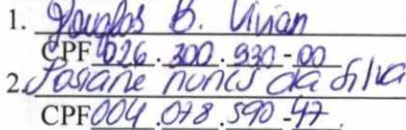 1. Douglas B. Vivian
CPF 026.300.930-00
2. Josiane nunes da Silva
CPF 004.078.590-47